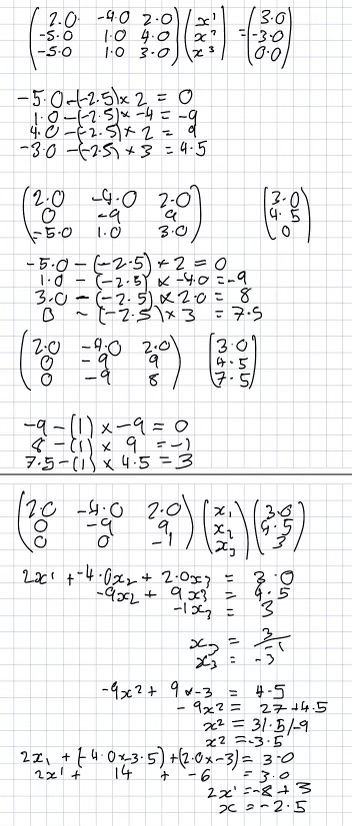 (2.0 -4.0 2.0) (x¹) = (3.0)
(-5.0 1.0 4.0) (x²) (-3.0)
(-5.0 1.0 3.0) (x³) (0.0)
-5.0-(-2.5)×2 = 0
1.0-(-2.5)×-4 = -9
4.0-(-2.5)×2 = 9
-3.0-(-2.5)×3 = 4.5
(2.0 -4.0 2.0) (3.0)
(0 -9 9) (4.5)
(-5.0 1.0 3.0) (0)
-5.0-(-2.5)×2 = 0
1.0-(-2.5)×-4.0=-9
3.0-(-2.5)×2.0= 8
0-(-2.5)×3 = 7.5
(2.0 -4.0 2.0) (3.0)
(0 -9 9) (4.5)
(0 -9 8) (7.5)
-9-(1)×-9 = 0
8-(1)× 9 =-1
7.5-(1)×4.5=3
(2.0 -4.0 2.0) (x₁) (3.0)
(0 -9 9) (x₂) (4.5)
(0 0 -1) (x₃) (3)
2x¹ +-4.0x₂ + 2.0x₃ = 3.0
-9x₂ + 9x₃ = 4.5
-1x₃ = 3
x₃ = 3/-1
x₃ = -3
-9x²+ 9×-3 = 4.5
-9x² = 27+4.5
x² = 31.5/-9
x² = -3.5
2x₁ + (-4.0×-3.5)+(2.0×-3)= 3.0
2x¹ + 14 + -6 = 3.0
2x¹ =-8+3
x = -2.5